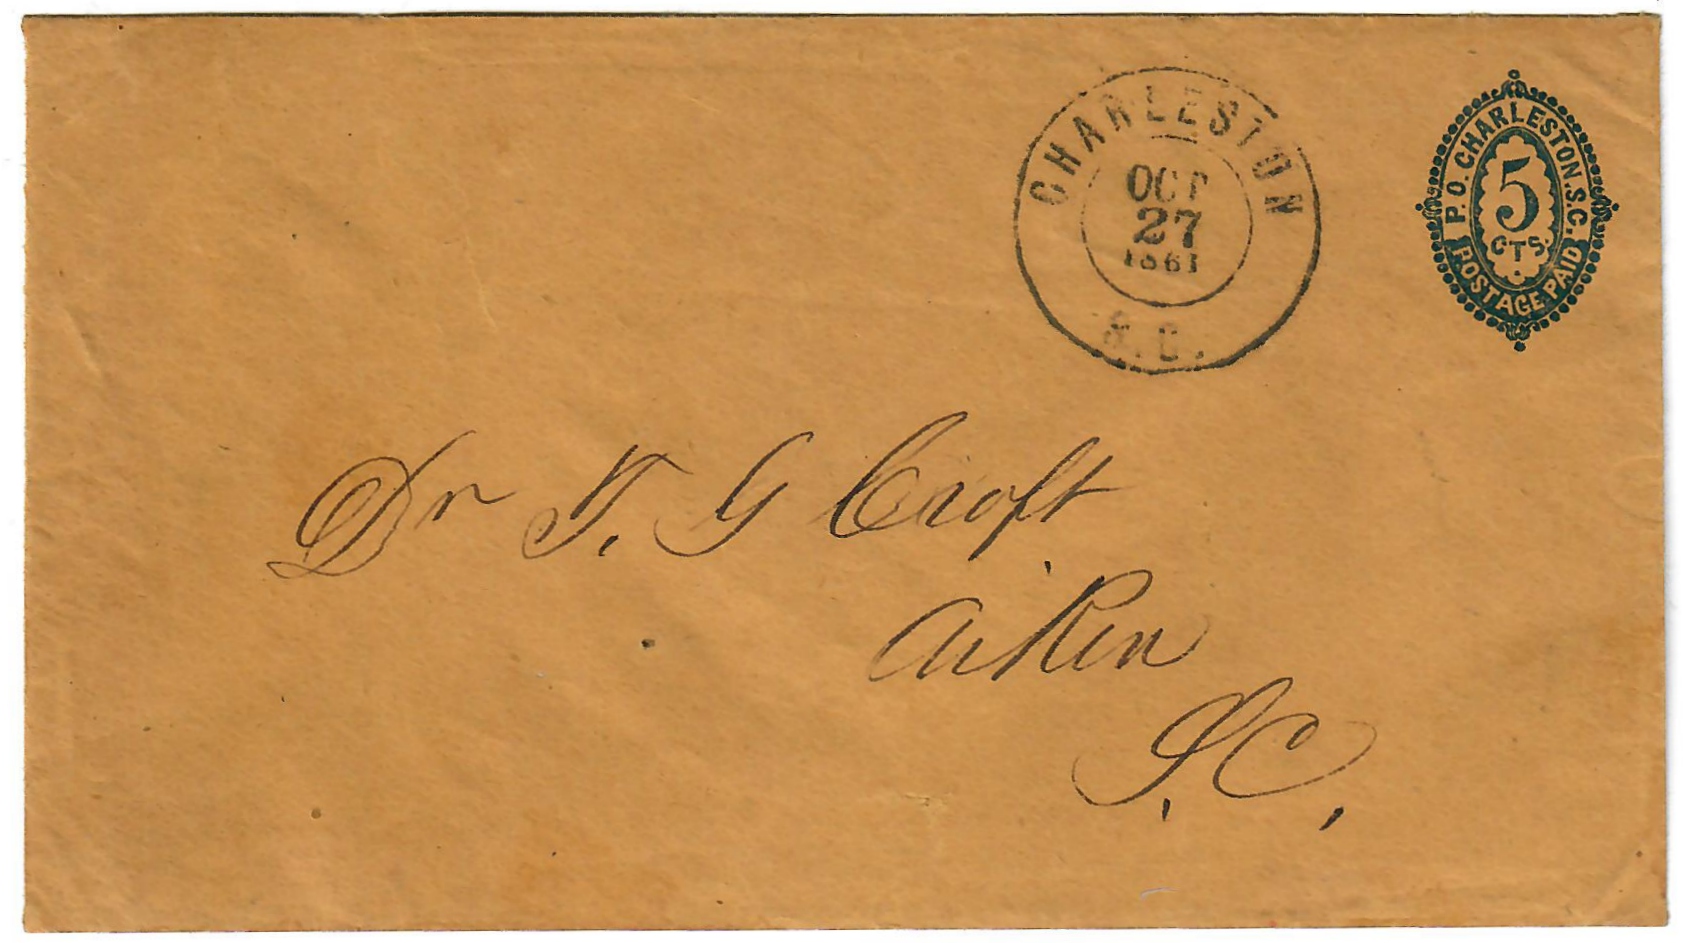 CHARLESTON
OCT
27
1861
S.C.
P.O. CHARLESTON. S.C.
5
CTS.
POSTAGE PAID
Dr T. G Croft
Aiken
S.C.